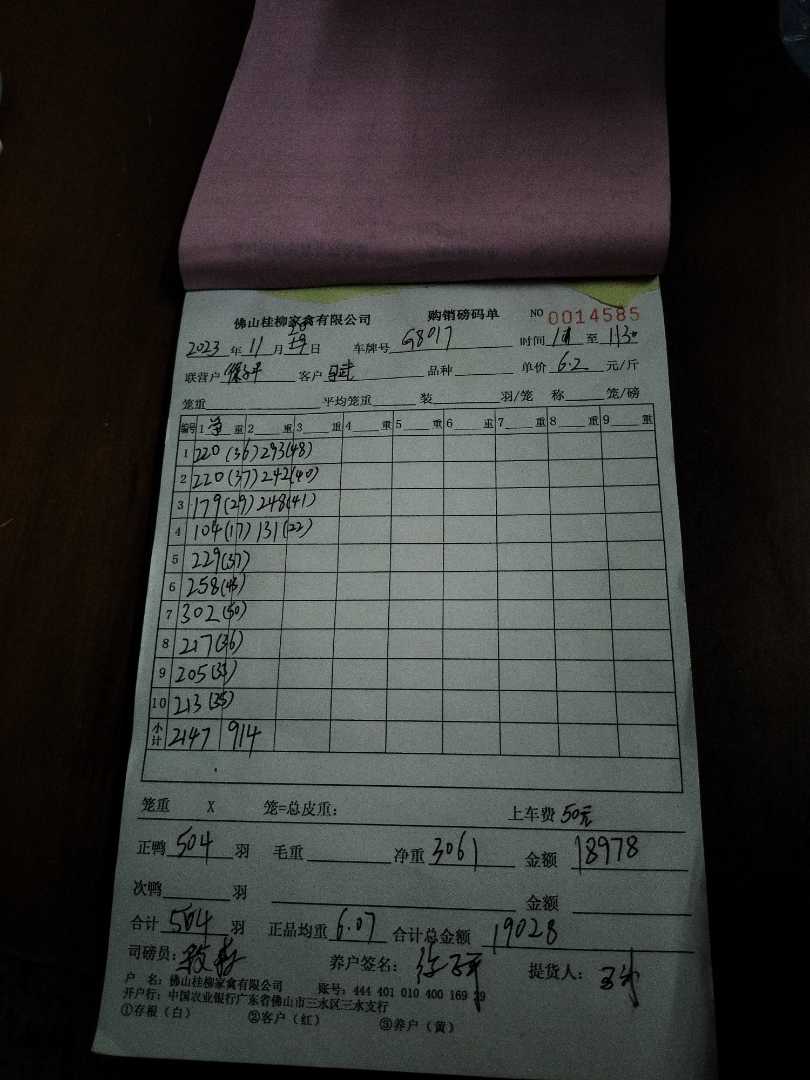 佛山桂柳家禽有限公司 购销磅码单 NO 0014585
2023 年 11 月 日 车牌号 G8017 时间 至 1130
联营户 客户 品种 单价 6.2 元/斤
笼重 平均笼重 装 羽/笼 称 笼/磅
编号 1 净 重 2 重 3 重 4 重 5 重 6 重 7 重 8 重 9 重
1 220 (36) 293 (48)
2 220 (37) 242 (40)
3 179 (29) 248 (41)
4 104 (17) 131 (22)
5 229 (37)
6 258 (43)
7 302 (50)
8 217 (36)
9 205 (33)
10 213 (35)
小计 2147 914
笼重 X 笼=总皮重: 上车费 50元
正鸭 504 羽 毛重 净重 3061 金额 18978
次鸭 羽 金额
合计 504 羽 正品均重 6.07 合计总金额 19028
司磅员: 养户签名: 提货人:
户 名: 佛山桂柳家禽有限公司 账号: 444 401 010 400 169 29
开户行: 中国农业银行广东省佛山市三水区三水支行
①存根(白) ②客户(红) ③养户(黄)